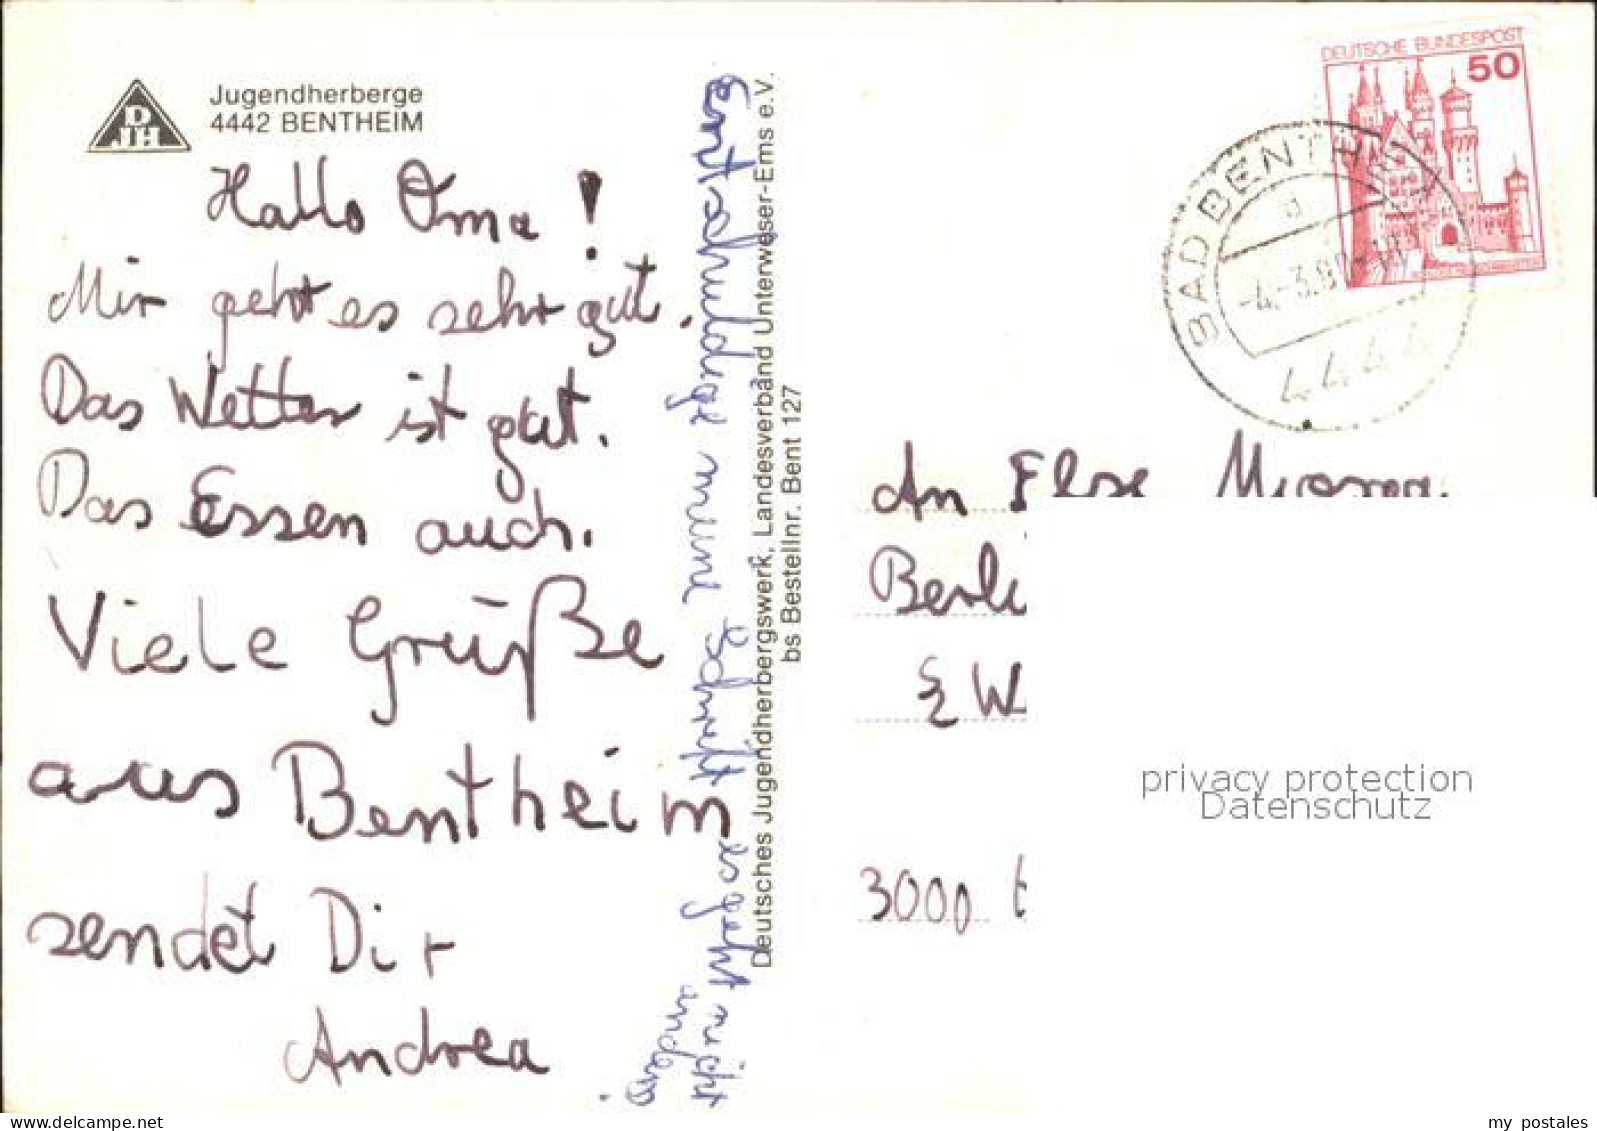 DJH
Jugendherberge
4442 BENTHEIM
Hallo Oma!
Mir geht es sehr gut.
Das Wetter ist gut.
Das Essen auch.
Viele Grüße
aus Bentheim
sendet Dir
Andrea
Entschuldige meine Schrift es geht nicht
anders
Deutsches Jugendherbergswerk, Landesverband Unterweser-Ems e.V.
bs Bestellnr. Bent 127
DEUTSCHE BUNDESPOST
50
BAD BENTHEIM
a
4444
An Else
3000
privacy protection
Datenschutz
my postales